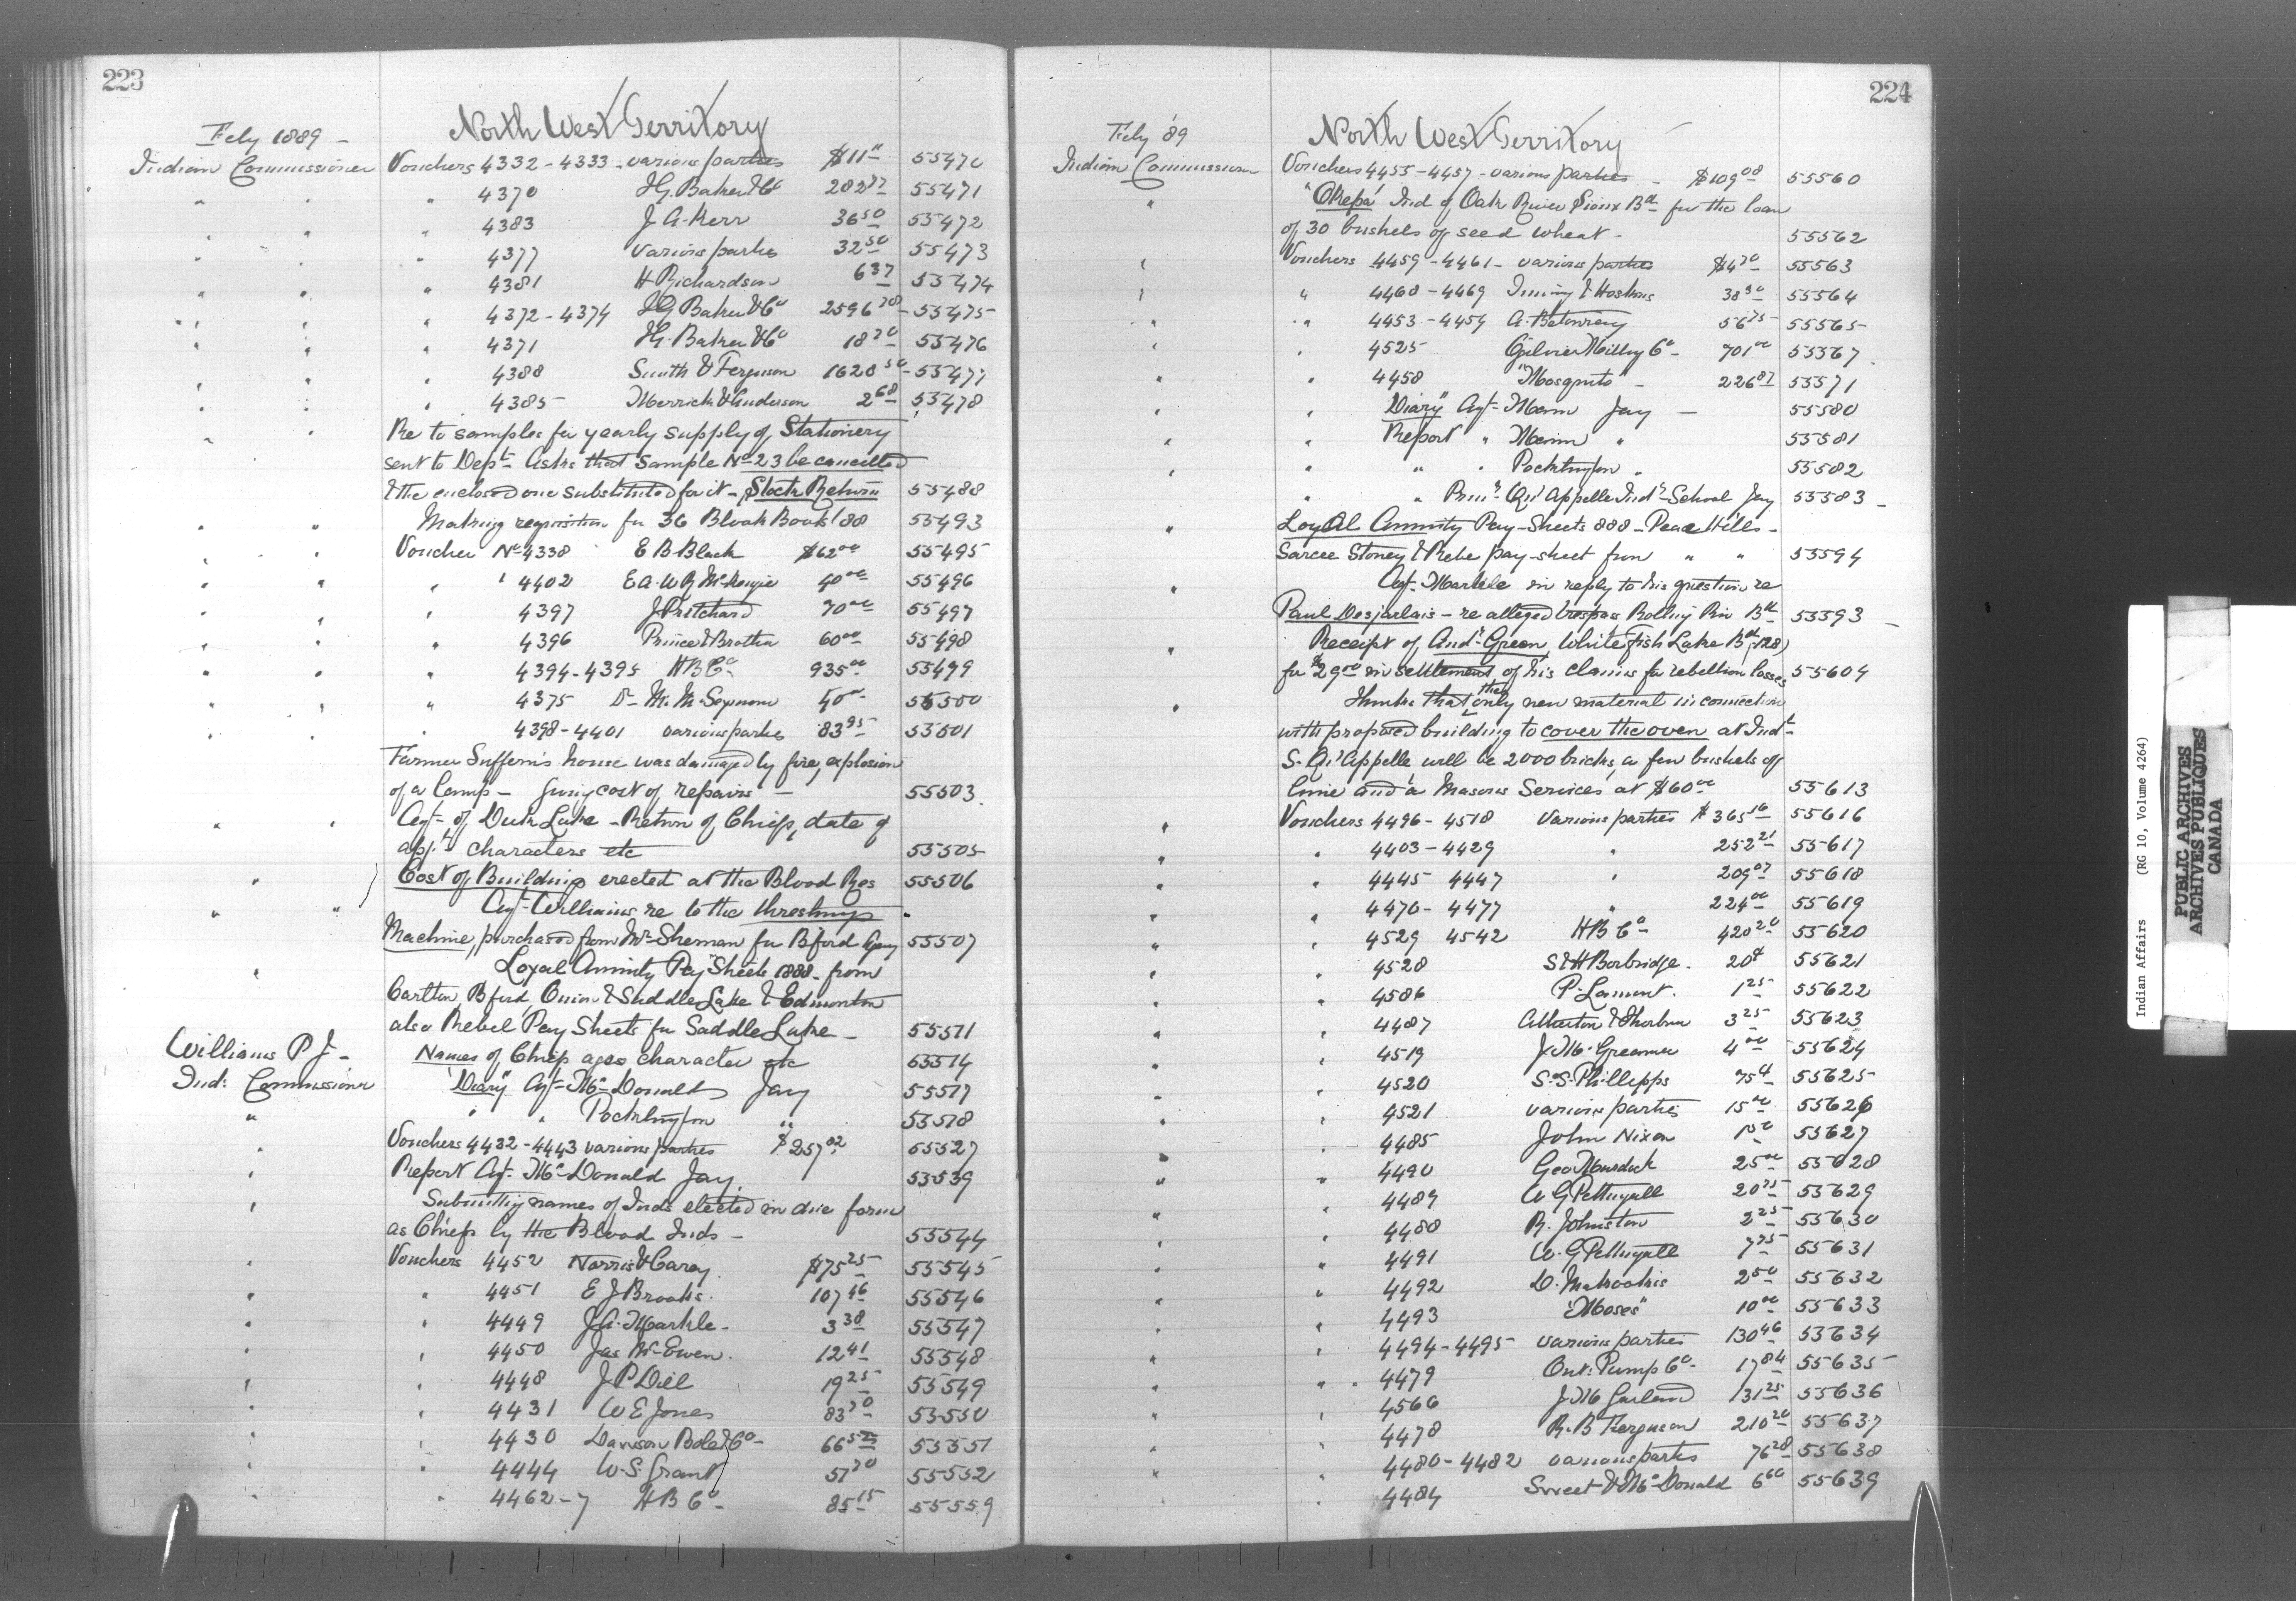 223
Feby 1889 - North West Territory
Indian Commissioner Vouchers 4332 - 4333 - various parties $11 " 55470
" " " 4370 I G Baker & Co 282 55471
" " " 4383 J. A. Kerr 36 50 55472
" " " 4377 various parties 32 50 55473
" " " 4381 H Richardson 6 37 55474
" " " 4372 - 4374 I G Baker & Co 2596 78 - 55475
" " " 4371 I G. Baker & Co 18 70 55476
" " " 4388 Smith & Ferguson 1628 50 - 55477
" " " 4385 Merrick & Anderson 2 68 55478
" " Re to samples for yearly supply of Stationery
sent to Dept. Asks that sample No 23 be cancelled
& the enclosed one substituted for it - Stock Return 55488
" " Making requisition for 36 Blank Books '88 55493
" " Voucher No 4338 E B Black $62 00 55495
" " " 4402 E A W R McKenzie 40 00 55496
" " " 4397 J Pritchard 70 00 55497
" " " 4396 Prince & Brother 60 00 55498
" " " 4394 - 4395 H B Co 935 00 55499
" " " 4375 Dr M. M. Seymour 40 00 55500
" " 4398 - 4401 various parties 83 95 55501
Farmer Suffern's house was damaged by fire, explosion
of a lamp - Giving cost of repairs - 55503.
" " Agt. of Duck Lake - Return of Chiefs, date of
appt. characters etc 55505
" Cost of Buildings erected at the Blood Res 55506
" " Agt. Williams re to the threshing
Machine, purchased from Mr Sherman for Bford Agency 55507
" Loyal Annuity Pay Sheets 1888 - from
Carlton, Bford, Onion & Saddle Lake & Edmonton
also Rebel Pay Sheets for Saddle Lake - 55511
Williams P J - Names of Chiefs ages character etc 55514
Ind: Commissioner "Diary" Agt. McDonald Jay 55517
" " " Pocklington " 55518
" Vouchers 4432 - 4443 various parties $257 02 55527
" Report Agt. McDonald Jay. 55539
" Submitting names of Inds elected in due form
as Chiefs by the Blood Inds - 55544
" Vouchers 4452 Norris & Carey. $75 25 55545
" " 4451 E J Brooks. 107 46 55546
" " 4449 J. A. Markle - 3 38 55547
" " 4450 Jas McEwen. 12 41 55548
" " 4448 J P Dill 19 25 55549
" " 4431 W E Jones 83 70 55550
" " 4430 Dawson Bole & Co - 66 55551
" " 4444 W. S. Grant 57 70 55552
" " 4462 - 7 H B Co - 85 15 55559
224
Feby '89 North West Territory
Indian Commissioner Vouchers 4455 - 4457 - various parties - $109 08 55560
" "Okepa" Ind of Oak River Sioux Bd for the loan
of 30 bushels of seed wheat - 55562
" Vouchers 4459 - 4461 - various parties $4 70 55563
" " 4468 - 4469 & Hoskins 38 50 55564
" " 4453 - 4454 A. 56 75 55565
" " 4525 Ogilvie Milling Co - 701 00 55567
" " 4458 "Mosquito" - 226 87 55571
" " "Diary" Agt. Mann Jay - 55580
" Report " Mann " 55581
" " " Pocklington " 55582
" " Prin: Qu'Appelle Indl School Jay 55583 -
" Loyal Annuity Pay-Sheets 888 - Peace Hills -
Sarcee Stoney & Rebel pay-sheet from " " 55594
" Agt. Markle in reply to his question re
Paul Desjarlais - re alleged trespass Rolling Riv Bd 55593 -
" Receipt of Andw Green, White Fish Lake Bd (128)
for $29 00 in settlement of his claims for rebellion losses 55604
" Thinks that the only new material in connection
with proposed building to cover the oven at Indl
S. Qu'Appelle will be 2000 bricks, a few bushels of
lime and a Masons Services at $60 00 55613
" Vouchers 4496 - 4518 Various parties $365 16 55616
" " 4403 - 4429 " 252 21 55617
" " 4445 4447 " 209 07 55618
" " 4470 - 4477 " 224 00 55619
" " 4529 4542 H B Co 420 20 55620
" " 4528 S & H Borbridge. 20 ¢ 55621
" " 4586 P. Lamont. 1 25 55622
" " 4487 Atherton & Thorburn 3 25 55623
" " 4519 J. M. Greamer 4 00 55624
" " 4520 S. S. Phillipps 75 ¢ 55625
" " 4521 various parties 15 00 55626
" " 4485 John Nixon 1 50 55627
" " 4490 Geo Murdock 25 00 55628
" " 4489 W G Pettingell 20 75 55629
" " 4488 R. Johnston 2 25 55630
" " 4491 W. G Pettingell 7 75 55631
" " 4492 D. 2 50 55632
" " 4493 "Moses" 10 00 55633
" " 4494 - 4495 various parties 130 46 55634
" " 4479 Ont. Pump Co - 17 84 55635
" " 4566 J M Garland 131 25 55636
" " 4478 R. B Ferguson 210 20 55637
" " 4480 - 4482 various parties 76 28 55638
" " 4484 Sweet & McDonald 6 60 55639
Indian Affairs (RG 10, Volume 4264)
PUBLIC ARCHIVES
ARCHIVES PUBLIQUES
CANADA